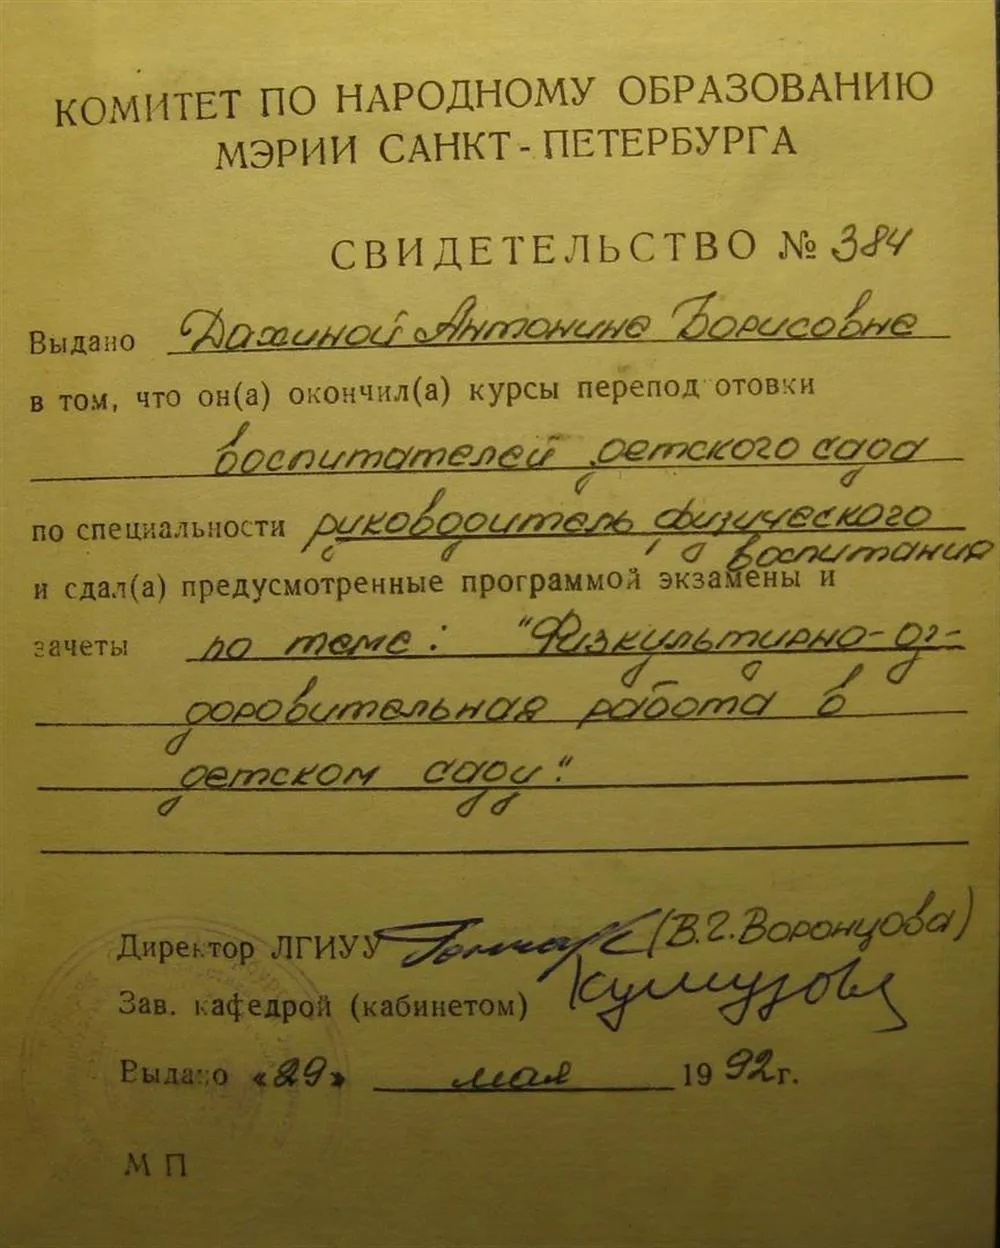 КОМИТЕТ ПО НАРОДНОМУ ОБРАЗОВАНИЮ
МЭРИИ САНКТ-ПЕТЕРБУРГА
СВИДЕТЕЛЬСТВО № 384
Выдано Дахиной Антонине Борисовне
в том, что он(а) окончил(а) курсы перепод отовки
воспитателей детского сада
по специальности руководитель физического
воспитания
и сдал(а) предусмотренные программой экзамены и
зачеты по теме: "Физкультурно-оз-
доровительная работа в
детском саду."
Директор ЛГИУУ (В.Г. Воронцова)
Зав. кафедрой (кабинетом)
Выдано «29» мая 1992г.
МП